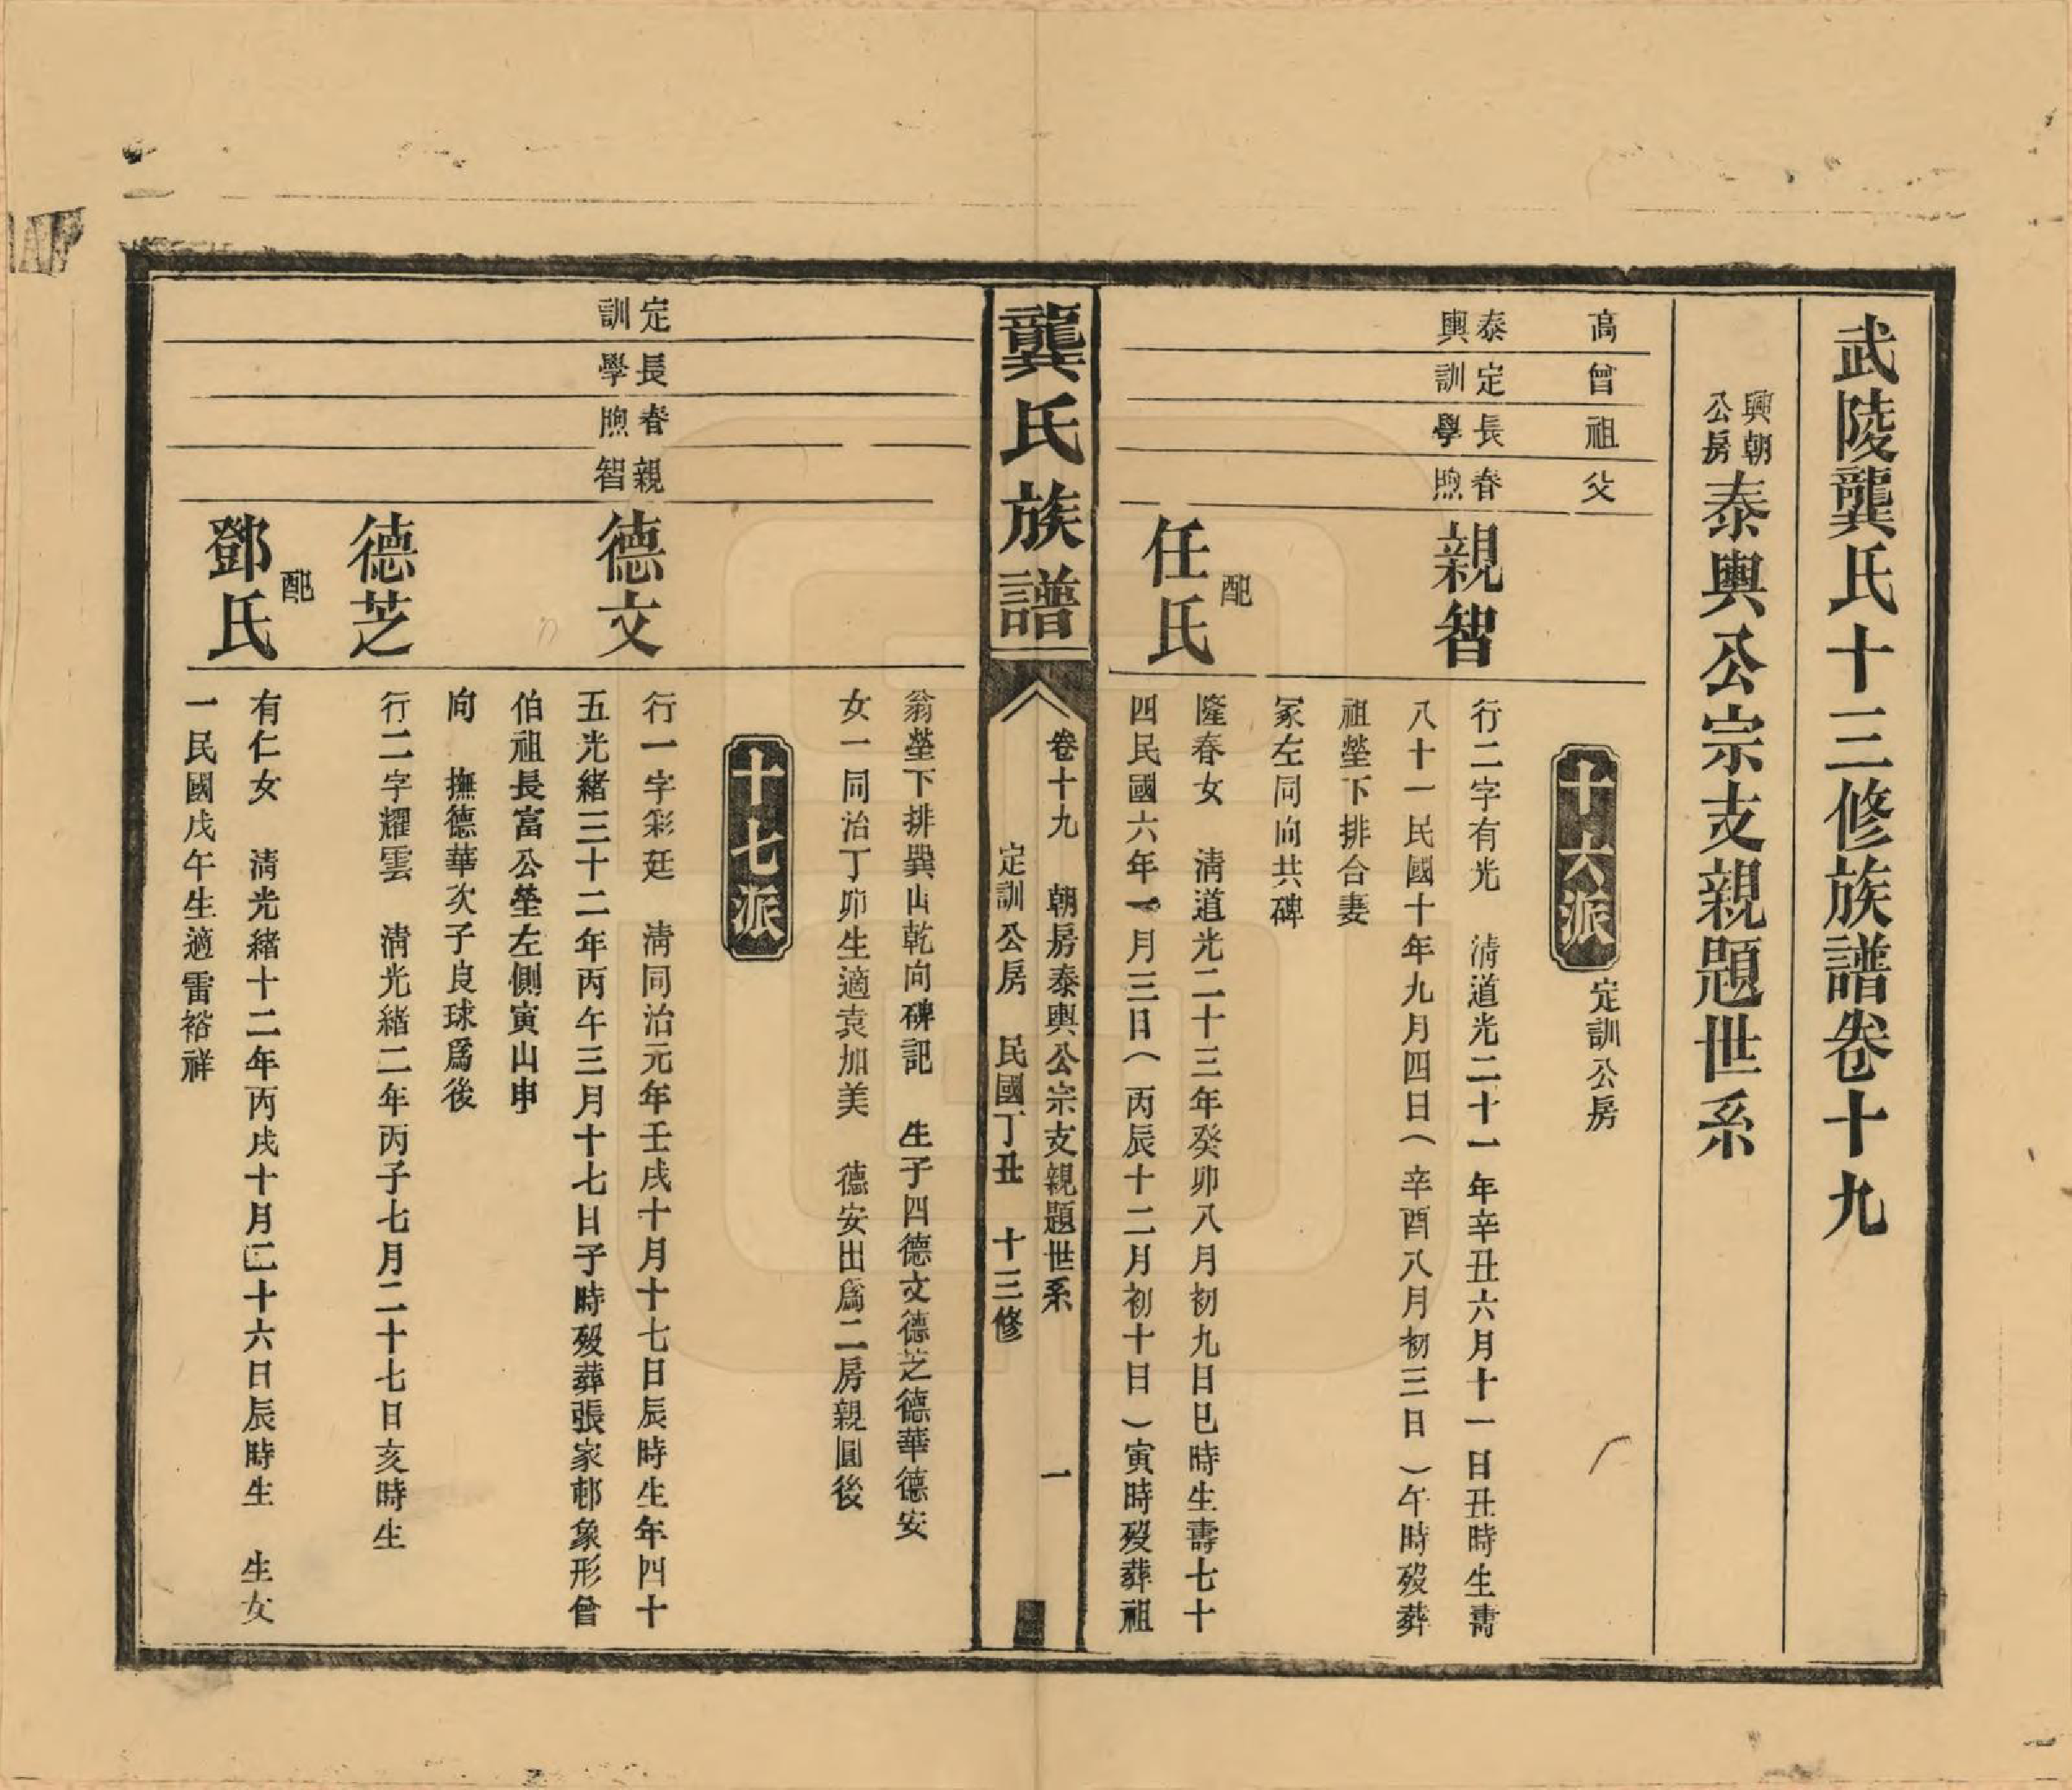 武陵龔氏十三修族譜卷十九
興朝公房泰輿公宗支親題世系
高曾祖父
十六派 定訓公房
泰輿 定訓 長學 春煦
親智
行二字有光 清道光二十一年辛丑六月十一日丑時生壽
八十一民國十年九月四日(辛酉八月初三日)午時歿葬
祖塋下排合妻
冢左同向共碑
配任氏
隆春女 清道光二十三年癸卯八月初九日巳時生壽七十
四民國六年一月三日(丙辰十二月初十日)寅時歿葬祖
龔氏族譜
卷十九 朝房泰輿公宗支親題世系 一
定訓公房 民國丁丑 十三修
翁塋下排巽山乾向碑記 生子四德文德芝德華德安
女一同治丁卯生適袁加美 德安出爲二房親圓後
十七派
定訓 長學 春煦 親智
德文
行一字彩廷 清同治元年壬戌十月十七日辰時生年四十
五光緒三十二年丙午三月十七日子時歿葬張家邨象形曾
伯祖長富公塋左側寅山申
向 撫德華次子良球爲後
德芝
行二字耀雲 清光緒二年丙子七月二十七日亥時生
配鄧氏
有仁女 清光緒十二年丙戌十月二十六日辰時生 生女
一民國戊午生適雷裕祥